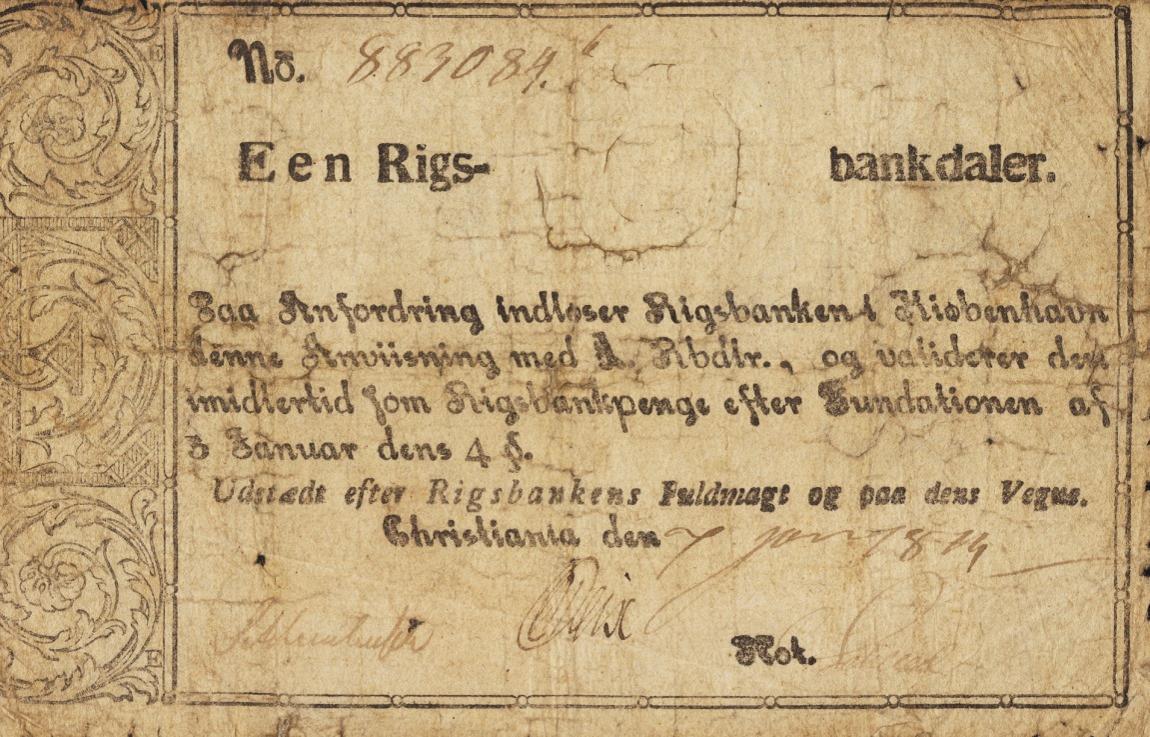 No. 883084.
Een Rigs- bankdaler.
Paa Anfordring indløser Rigsbanken i Kiøbenhavn
denne Anviisning med 1. Rbdlr., og validerer den
imidlertid som Rigsbankpenge efter Fundationen af
5 Januar dens 4 §.
Udstædt efter Rigsbankens Fuldmagt og paa dens Vegne.
Christiania den 7 Jan 1814
Not.